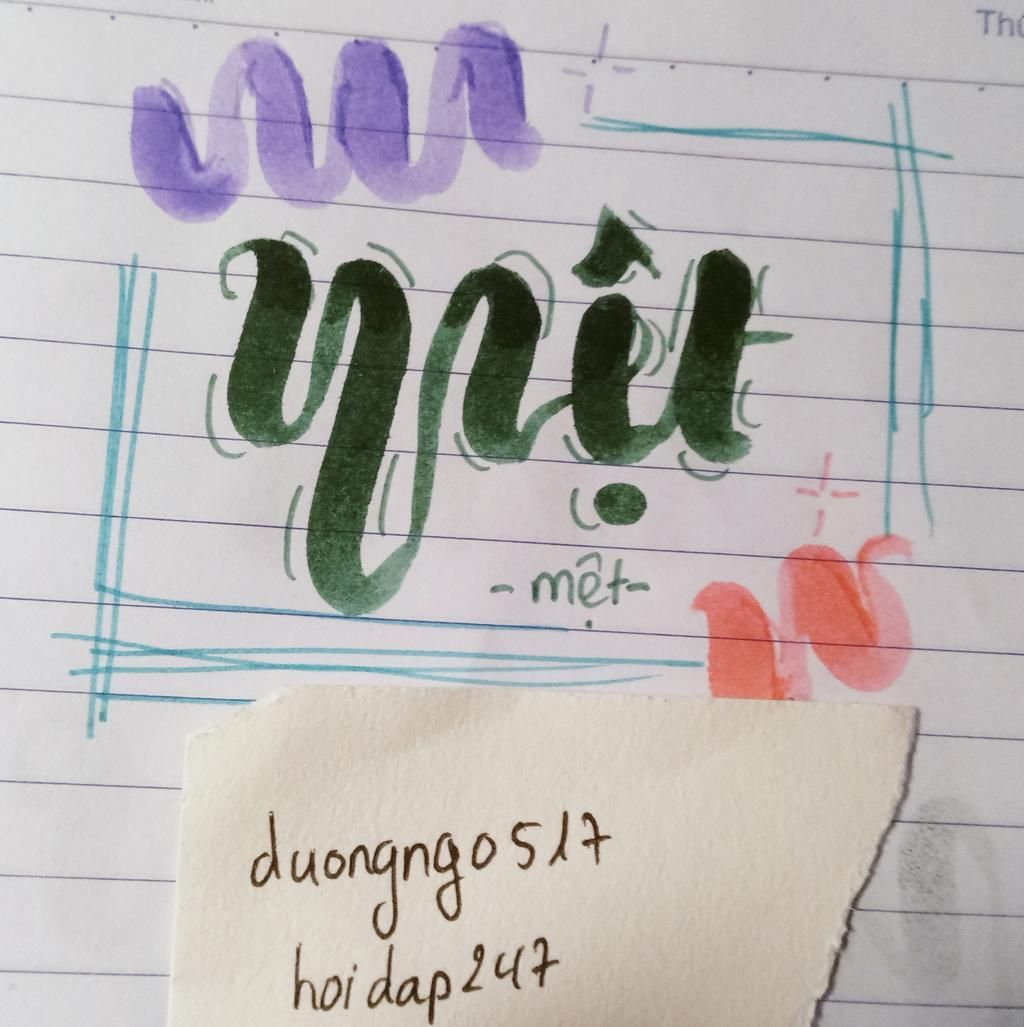 Thứ
mệt
- mệt -
duongngo517
hoidap247